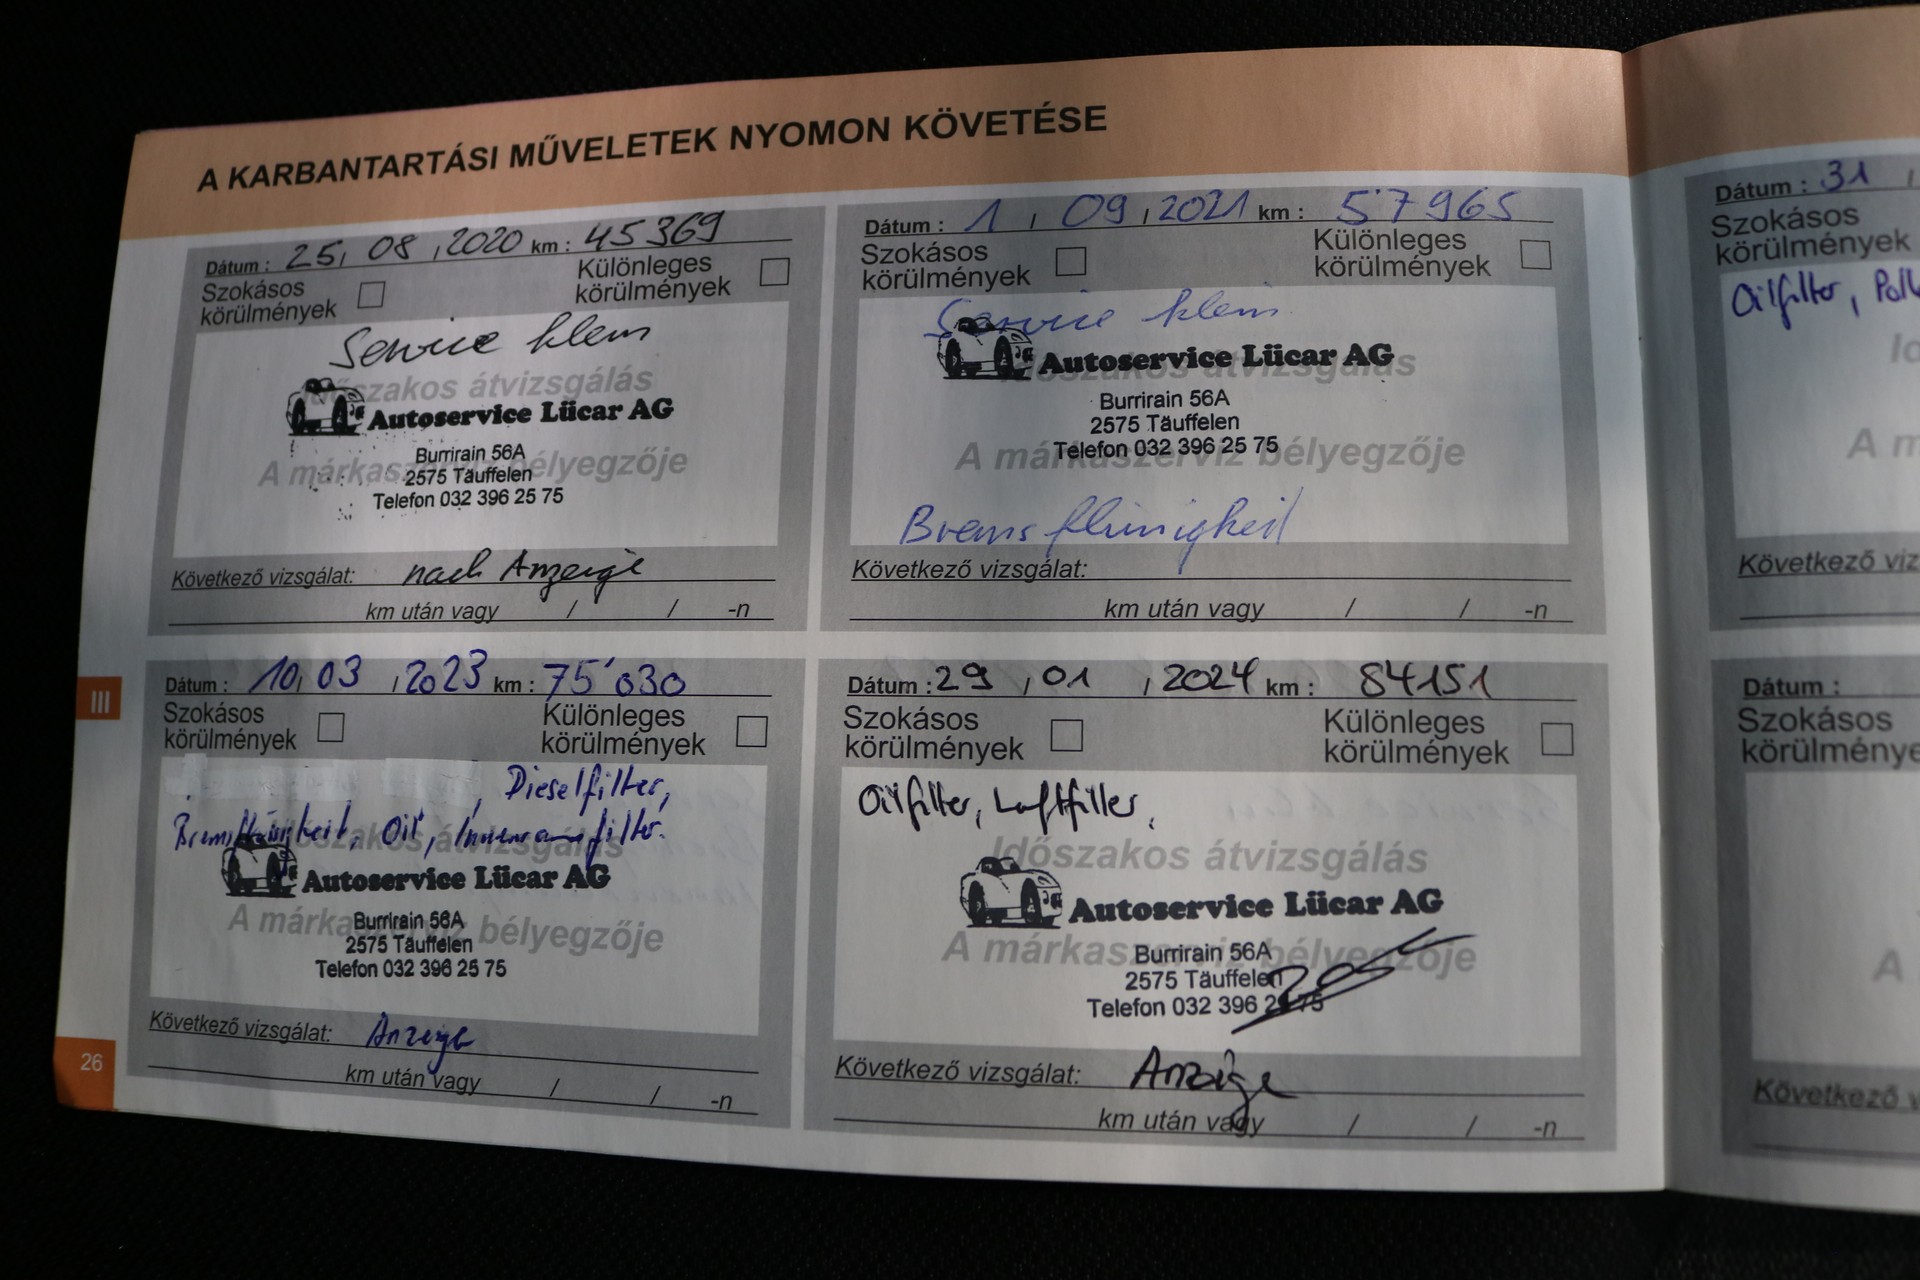 A KARBANTARTÁSI MŰVELETEK NYOMON KÖVETÉSE
Dátum : 25, 08 , 2020 km : 45369
Szokásos körülmények
Különleges körülmények
Service klein
Időszakos átvizsgálás
Autoservice Lücar AG
A márkaszerviz bélyegzője
Burrirain 56A
2575 Täuffelen
Telefon 032 396 25 75
Következő vizsgálat: nach Anzeige
km után vagy / / -n
Dátum : 1 , 09 , 2021 km : 57965
Szokásos körülmények
Különleges körülmények
Service klein
Időszakos átvizsgálás
Autoservice Lücar AG
Burrirain 56A
2575 Täuffelen
A márkaszerviz bélyegzője
Telefon 032 396 25 75
Bremsflüssigkeit
Következő vizsgálat:
km után vagy / / -n
III
Dátum : 10, 03 , 2023 km : 75'030
Szokásos körülmények
Különleges körülmények
, Dieselfilter,
Bremsflüssigkeit, Oil, Innenraumfilter.
Időszakos átvizsgálás
Autoservice Lücar AG
A márkaszerviz bélyegzője
Burrirain 56A
2575 Täuffelen
Telefon 032 396 25 75
Következő vizsgálat: Anzeige
km után vagy / / -n
Dátum : 29 , 01 , 2024 km : 84151
Szokásos körülmények
Különleges körülmények
Oilfilter, Luftfilter,
Időszakos átvizsgálás
Autoservice Lücar AG
A márkaszerviz bélyegzője
Burrirain 56A
2575 Täuffelen
Telefon 032 396 25 75
Következő vizsgálat: Anzeige
km után vagy / / -n
26
Dátum : 31 ,
Szokásos
körülmények
Oilfilter,
A
Következő
Dátum :
Szokásos
A
Következő